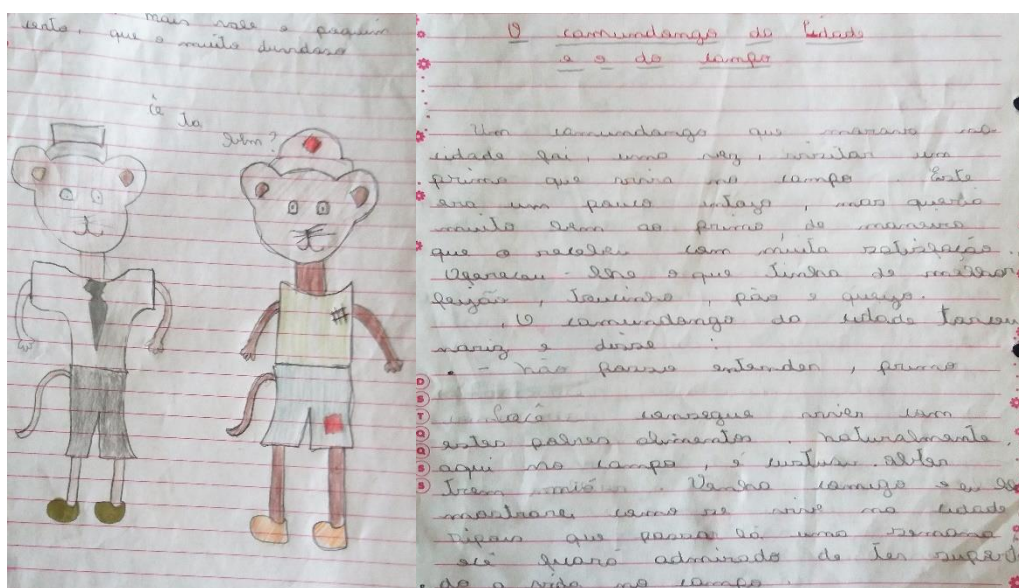 mais vale o pouquim
certo, que o muito duvidoso
Cê ta
bem?
O camundango da Cidade
e o do campo
Um camundango que morava na
cidade foi, uma vez, visitar um
primo que vivia no campo. Este
era um pouco , mas queria
muito bem ao primo, de maneira
que o recebeu com muita satisfação.
Ofereceu-lhe o que tinha de milhor
feijão, toucinho, pão e queijo.
O camundango da cidade torceu
nariz e disse :
- não posso entender, primo
D
S
T
Q
Q
S
S
Você consegue viver com
estes pobres alimentos. naturalmente,
aqui no campo, é obter
trem mió. Venha comigo e eu lhe
mostrarei como se vive na cidade
Dipois que passa lá uma semana
ocê ficará admirado de ter suporta
do a vida no campo.